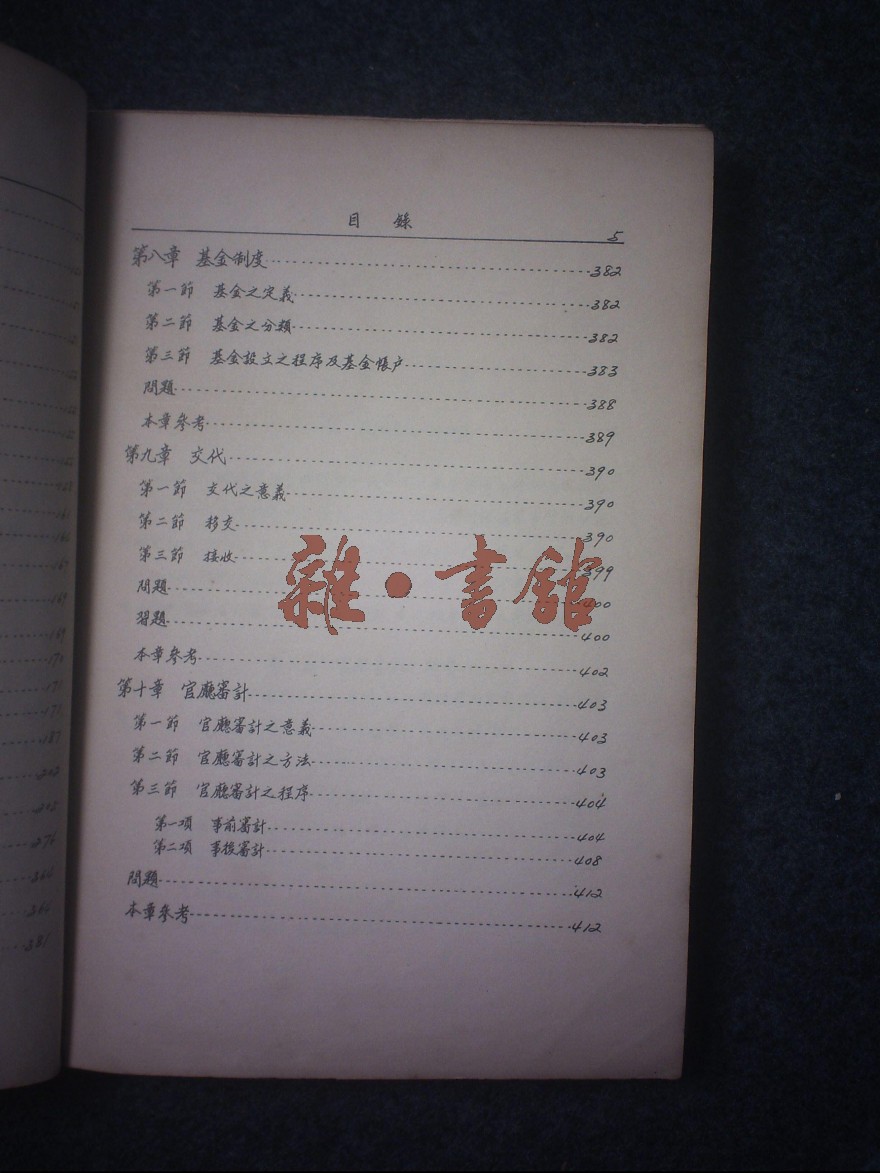 目 錄 5
第八章 基金制度 382
第一節 基金之定義 382
第二節 基金之分類 382
第三節 基金設立之程序及基金帳户 383
問題 388
本章參考 389
第九章 交代 390
第一節 交代之意義 390
第二節 移交 390
第三節 接收 399
問題 400
習題 400
本章參考 402
第十章 官廳審計 403
第一節 官廳審計之意義 403
第二節 官廳審計之方法 403
第三節 官廳審計之程序 404
第一項 事前審計 404
第二項 事後審計 408
問題 412
本章參考 412
雜·書館